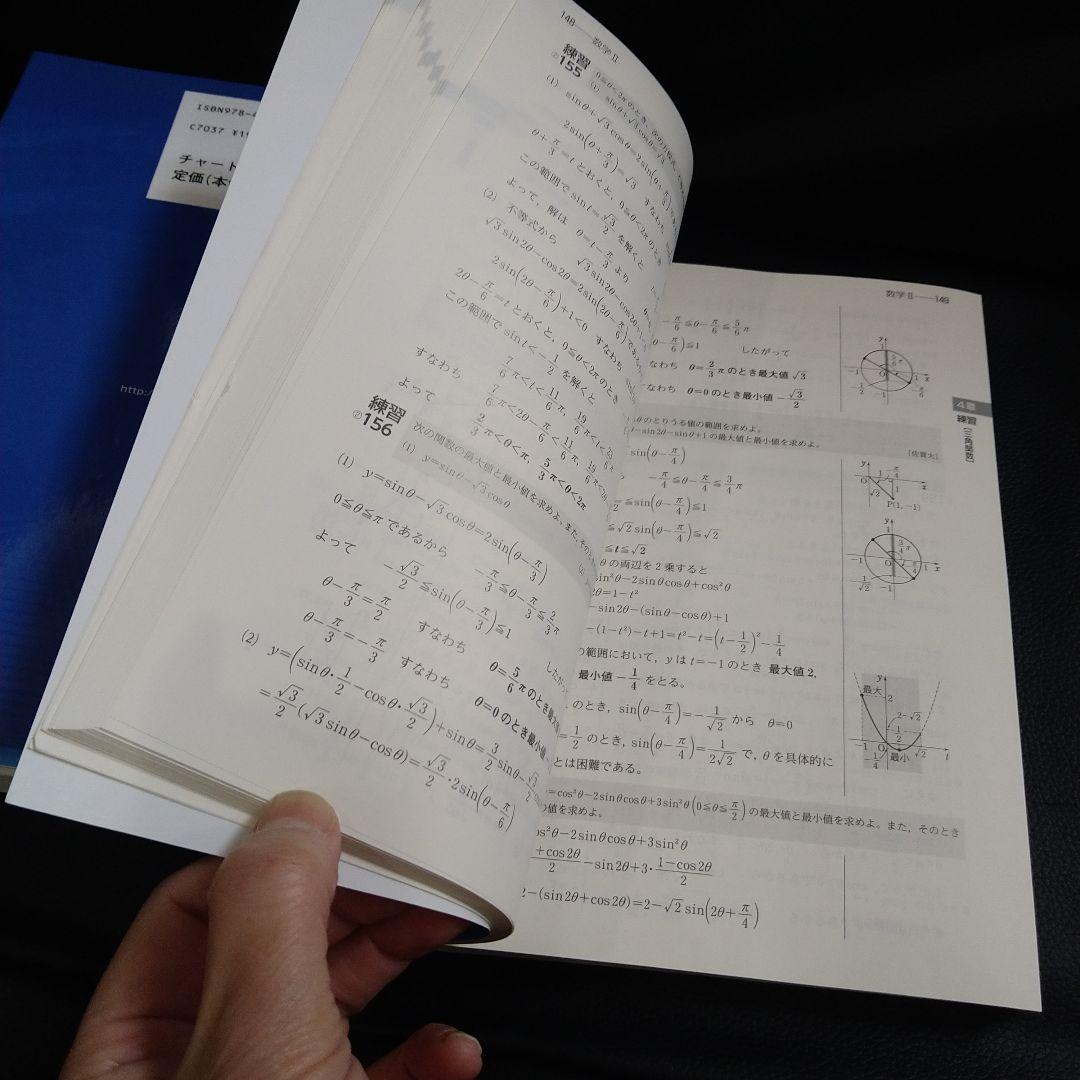 ISBN978-4
C7037 ¥19
チャート
定価(本
http:/
148 数学Ⅱ
練習
②155
0≦θ<2πのとき,次の方程式
(1) sinθ+√3cosθ=√3
(1) sinθ+√3cosθ=2sin(θ+π/3)
2sin(θ+π/3)=√3 すなわち
θ+π/3=tとおくと,0≦θ<2πのとき
この範囲でsint=√3/2を解くと
よって,解は θ=t-π/3より
(2) 不等式から √3sin2θ-cos2θ+1
√3sin2θ-cos2θ=2sin(2θ-π/6)であ
2sin(2θ-π/6)+1<0 すなわち
2θ-π/6=tとおくと,0≦θ<2πのとき
この範囲でsint<-1/2を解くと
7/6π<t<11/6π, 19/6π<t<
すなわち 7/6π<2θ-π/6<11/6π, 19/6π<2θ
よって 2/3π<θ<π, 5/3π<θ<2π
練習
②156
次の関数の最大値と最小値を求めよ。また,そのとき
(1) y=sinθ-√3cosθ
(1) y=sinθ-√3cosθ=2sin(θ-π/3)
0≦θ≦πであるから -π/3≦θ-π/3≦2/3π
よって -√3/2≦sin(θ-π/3)≦1
したがって
θ-π/3=π/2 すなわち θ=5/6πのとき最大
θ-π/3=-π/3 すなわち θ=0のとき最小値
(2) y=(sinθ・1/2-cosθ・√3/2)+sinθ=3/2sinθ-√3/2
=√3/2(√3sinθ-cosθ)=√3/2・2sin(θ-π/6)
数学Ⅱ 149
-π/6≦θ-π/6≦5/6π
θ-π/6)≦1 したがって
なわち θ=2/3πのとき最大値√3
なわち θ=0のとき最小値-√3/2
4章
練習
[三角関数]
θのとりうる値の範囲を求めよ。
-sin2θ-sinθ+1の最大値と最小値を求めよ。
[佐賀大]
sin(θ-π/4)
-π/4≦θ-π/4≦3/4π
≦sin(θ-π/4)≦1
≦√2sin(θ-π/4)≦√2
≦t≦√2
P(1, -1)
θの両辺を2乗すると
sin²θ-2sinθcosθ+cos²θ
2θ=1-t²
-sin2θ-(sinθ-cosθ)+1
-(1-t²)-t+1=t²-t=(t-1/2)²-1/4
の範囲において,yはt=-1のとき 最大値2,
最小値-1/4をとる。
のとき,sin(θ-π/4)=-1/√2から θ=0
=1/2のとき,sin(θ-π/4)=1/2√2で,θを具体的に
とは困難である。
最大
2-√2
最小
=cos²θ-2sinθcosθ+3sin²θ(0≦θ≦π/2)の最大値と最小値を求めよ。また,そのとき
の値を求めよ。
os²θ-2sinθcosθ+3sin²θ
+cos2θ/2-sin2θ+3・1-cos2θ/2
2-(sin2θ+cos2θ)=2-√2sin(2θ+π/4)